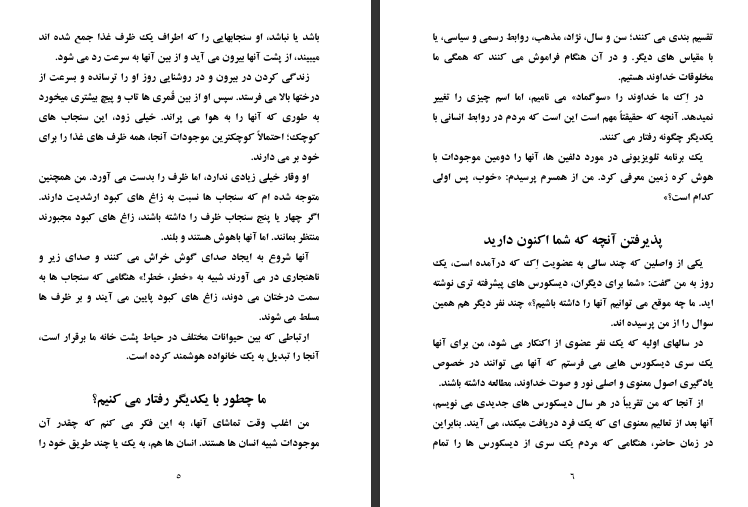 باشد یا نباشد، او سنجابهایی را که اطراف یک ظرف غذا جمع شده اند
میبیند، از پشت آنها بیرون می آید و از بین آنها به سرعت رد می شود.
زندگی کردن در بیرون و در روشنایی روز او را ترسانده و بسرعت از
درختها بالا می فرستد. سپس او از بین قُمری ها تاب و پیچ بیشتری میخورد
به طوری که آنها را به هوا می پراند. خیلی زود، این سنجاب های
کوچک؛ احتمالاً کوچکترین موجودات آنجا، همه ظرف های غذا را برای
خود بر می دارند.
او وقار خیلی زیادی ندارد، اما ظرف را بدست می آورد. من همچنین
متوجه شده ام که سنجاب ها نسبت به زاغ های کبود ارشدیت دارند.
اگر چهار یا پنج سنجاب ظرف را داشته باشند، زاغ های کبود مجبورند
منتظر بمانند. اما آنها باهوش هستند و بلند.
آنها شروع به ایجاد صدای گوش خراش می کنند و صدای زیر و
ناهنجاری در می آورند شبیه به «خطر، خطر!» هنگامی که سنجاب ها به
سمت درختان می دوند، زاغ های کبود پایین می آیند و بر ظرف ها
مسلط می شوند.
ارتباطی که بین حیوانات مختلف در حیاط پشت خانه ما برقرار است،
آنجا را تبدیل به یک خانواده هوشمند کرده است.
ما چطور با یکدیگر رفتار می کنیم؟
من اغلب وقت تماشای آنها، به این فکر می کنم که چقدر آن
موجودات شبیه انسان ها هستند. انسان ها هم، به یک یا چند طریق خود را
۵
تقسیم بندی می کنند؛ سن و سال، نژاد، مذهب، روابط رسمی و سیاسی، یا
با مقیاس های دیگر. و در آن هنگام فراموش می کنند که همگی ما
مخلوقات خداوند هستیم.
در اِک ما خداوند را «سوگماد» می نامیم، اما اسم چیزی را تغییر
نمیدهد. آنچه که حقیقتاً مهم است این است که مردم در روابط انسانی با
یکدیگر چگونه رفتار می کنند.
یک برنامه تلویزیونی در مورد دلفین ها، آنها را دومین موجودات با
هوش کره زمین معرفی کرد. من از همسرم پرسیدم: «خوب، پس اولی
کدام است؟»
پذیرفتن آنچه که شما اکنون دارید
یکی از واصلین که چند سالی به عضویت اِک که درآمده است، یک
روز به من گفت: «شما برای دیگران، دیسکورس های پیشرفته تری نوشته
اید. ما چه موقع می توانیم آنها را داشته باشیم؟» چند نفر دیگر هم همین
سوال را از من پرسیده اند.
در سالهای اولیه که یک نفر عضوی از اکنکار می شود، من برای آنها
یک سری دیسکورس هایی می فرستم که آنها می توانند در خصوص
یادگیری اصول معنوی و اصلی نور و صوت خداوند، مطالعه داشته باشند.
از آنجا که من تقریباً در هر سال دیسکورس های جدیدی می نویسم،
آنها بعد از تعالیم معنوی ای که یک فرد دریافت میکند، می آیند. بنابراین
در زمان حاضر، هنگامی که مردم یک سری از دیسکورس ها را تمام
۶